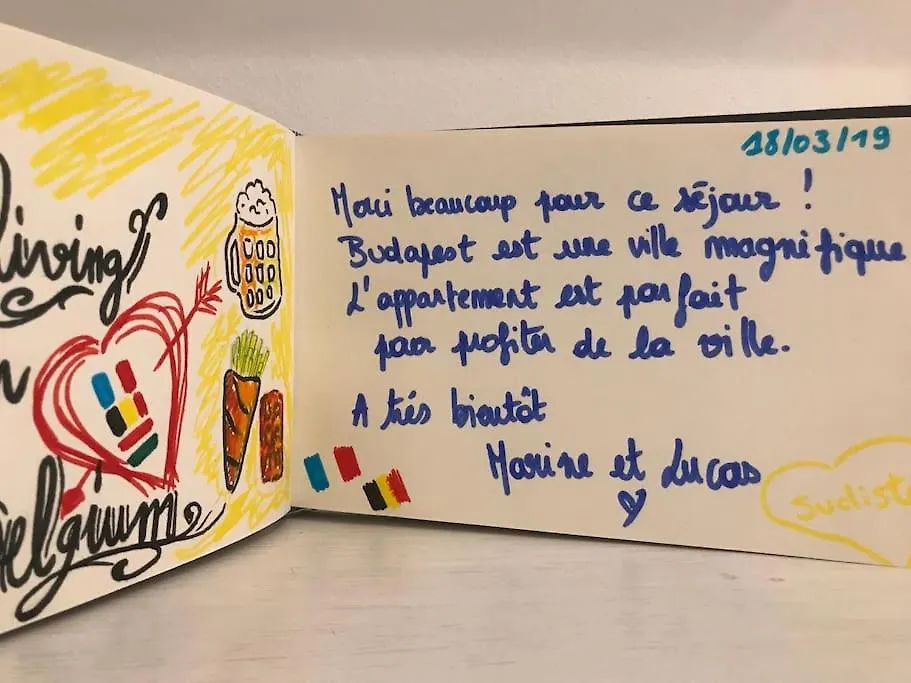 living
elgium
18/03/19
Merci beaucoup pour ce séjour !
Budapest est une ville magnifique
L'appartement est parfait
pour profiter de la ville.
A très bientôt
Marine et Lucas
Sudiste